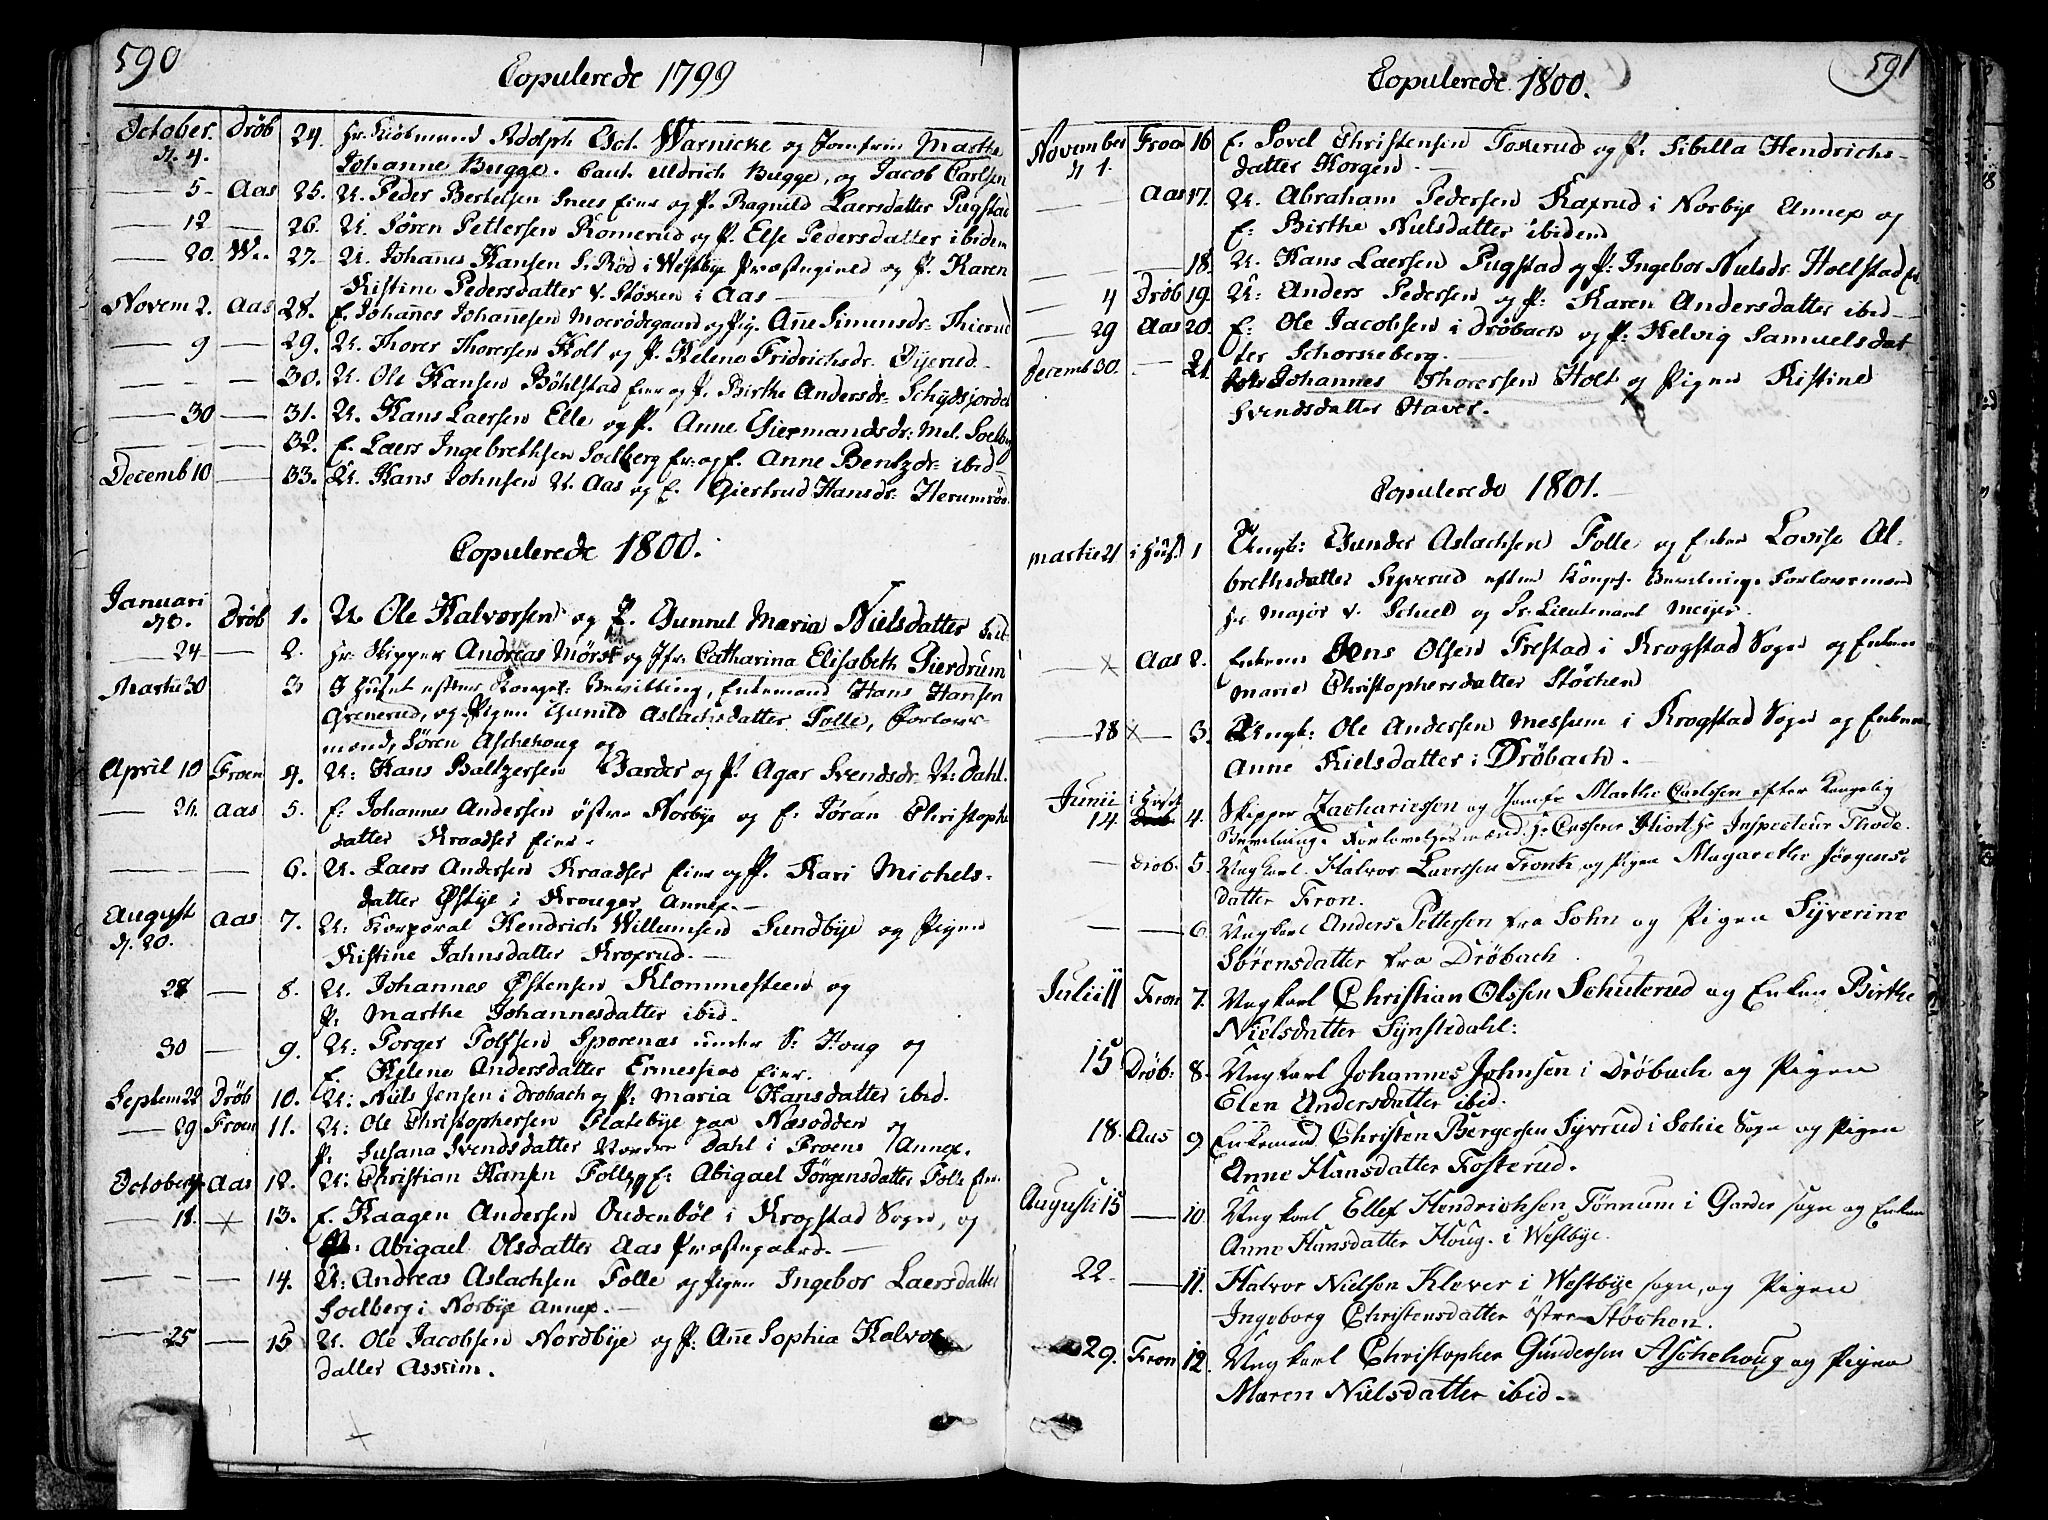 590
Copulerede 1799
October. Drøb 24. Hr. Kiøbmand Adolph Warnicke og Jomfru Marthe
d. 4. Johanne Bugge. Caut. Uldrich Bugge, og Jacob Carlsen
— 5 — Aas 25. U. Peder Bertelsen Snees Eier og P. Ragnild Laersdatter Pugstad
— 12 — 26. U. Søren Pettersen Romerud og P. Else Pedersdatter ibidem
— 20. W. 27. U. Johannes Hansen S. Rød i Westbye Præstegield og P. Karen
Kistine Pedersdatter v. Støken i Aas
Novem 2. Aas 28. E. Johannes Johannesen Moerødegaard og Pig. Anne Simensdr. Thierud
— 9 — 29. U. Thorer Thorersen Holt og P. Helene Fridrichsdr. Øyerud
— — — 30. U. Ole Hansen Bøhlstad Eier og P. Birthe Andersdr. Schydsjordet
— 30 — 31. U. Hans Laersen Elle og P. Anne Giermandsdr: Mel. Soelberg
— — 32. E. Laers Ingebrethsen Soelberg Er: og E. Anne Bentzdr: ibid
Decemb 10 — 33. U. Hans Johnsen N. Aas og E. Giertrud Hansdr: Herumrød
Copulerede 1800.
Januari
d. 3. Drøb 1. U. Ole Halvorsen og P. Gunnul Maria Nielsdatter ibid
— 24 — 2. Hr. Skipper Andreas Mørst og Jfr. Catharina Elisabeth Gierdrum
Martii 30 3 I Huset efter Konget: Bevilling, Enkemand Hans Hansen
Grenerud, og Pigen Gunild Aslachsdatter Folle, Forlover-
mænd, Søren Aschehoug og
April 10 Froen 4. U: Hans Baltzersen Garder og P. Agar Svendsdr. N: Dahl.
— 26. Aas 5. E: Johannes Andersen østre Norbye og E: Jøran Christophe
datter Kraadser Eier.
— — 6. U. Laers Andersen Kraadser Eier og P. Kari Michels-
datter Østbye i Kronger Annex. —
August Aas 7. U: Korporal Hendrich Willumsen Sundbye og Pigen
d. 20. Kistine Jahnsdatter Kroxrud. —
28 — 8. U. Johannes Østensen Klommesteen og
P: Marthe Johannesdatter ibid.
30 — 9. U: Torger Tolfsen Sporenæs under S: Houg og
E. Helene Andersdatter Ermessiøe Eier.
Septem 28 Drøb 10. U: Niels Jensen i Drobach og P: Maria Hansdatter ibid.
— 29 Froen 11. U: Ole Christophersen Flatebye paa Næsodden og
P: Susana Svendsdatter Nordre Dahl i Froens Annex.
October 4 Aas 12. U: Christian Hansen Folle og E: Abigael Jørgensdatter Folle Eier
— 18. × 13. E. Haagen Andersen Oudenbøl i Krogstad Sogn, og
P: Abigael Olsdatter Aas Præstegaard. —
— — — 14. U: Andreas Aslachsen Folle og Pigen Ingebor Laersdatter
Soelberg i Norbye Annex. —
— 25 — 15 U. Ole Jacobsen Nordbye og P: Anne Sophia Halvors
datter Asskim.
591
Copulerede 1800.
November Froen 16 E. Sovel Christensen Toskerud og P. Sibilla Hendrichs-
d 1. datter Korgen. —
— Aas 17. U. Abraham Pedersen Kaxrud i Norbye Annex og
E: Birthe Nielsdatter ibidem
— — 18. U. Hans Laersen Pugstad og P: Ingebor Nielsdr. Holstad Er
— 4 Drøb 19. U: Anders Pedersen og P: Karen Andersdatter ibid —
— 29 Aas 20. E: Ole Jacobsen i Drøbach og P. Helvig Samuelsdat
ter Schorskeberg. —
Decemb 30. — 21. Johannes Thorersen Holt og Pigen Kistine
Svendsdatter Haver.
Copulerede 1801.
Martii 21 i Hus. 1 Ungk: Gunder Aslachsen Folle og Enken Lovise Al-
brethsdatter Syverud efter Kongl. Bevilning. Forlovermænd
Hr Major v. Scheel og Pr. Lieutenant Meijer.
— × Aas 2. Enkem Jens Olsen Frestad i Krogstad Sogn og Enken
Marie Christophersdatter Støchen
— 28 × — 3. Ungk: Ole Andersen Messum i Krogstad Sogn og Enken
Anne Nielsdatter i Drøbach. —
Junii i Huset
14. 4. Skipper Zachariessen og Jomfr Marthe Carlssen efter Kongelig
Bevilning. Forlovelsesmænd. Hr Hiort Hr Inspecteur Thode.
— Drob. 5. Ungkarl. Halvor Laerssen Fronte og Pigen Magarethe Jørgens-
datter Fron.
— — 6. Ungkarl Anders Pettersen fra Sohn og Pigen Syverine
Sørensdatter fra Drøbach.
Julii 11 Fron 7. Ungkarl Christian Olssen Schuterud og Enken Birthe
Nielsdatter Synstedahl:
15 Drøb: 8. Ungkarl Johannes Johnsen i Drøbach og Pigen
Elen Andersdatter ibid.
18. Aas 9 Enkemand Christen Bergersen Syvrud i Schie Sogn og Pigen
Anne Hansdatter Fosterud.
Augusti 15 — 10. Ungkarl Ellef Hendrichsen Tønnum i Garder Sogn og Enken
Anne Hansdatter Houg. i Westbye.
22. — 11. Halvor Nielsen Klever i Westbye Sogn, og Pigen
Ingeborg Christensdatter østre Støchen.
29. Fron 12. Ungkarl Christopher Gundersen Aschehoug og Pigen
Maren Nielsdatter ibid.